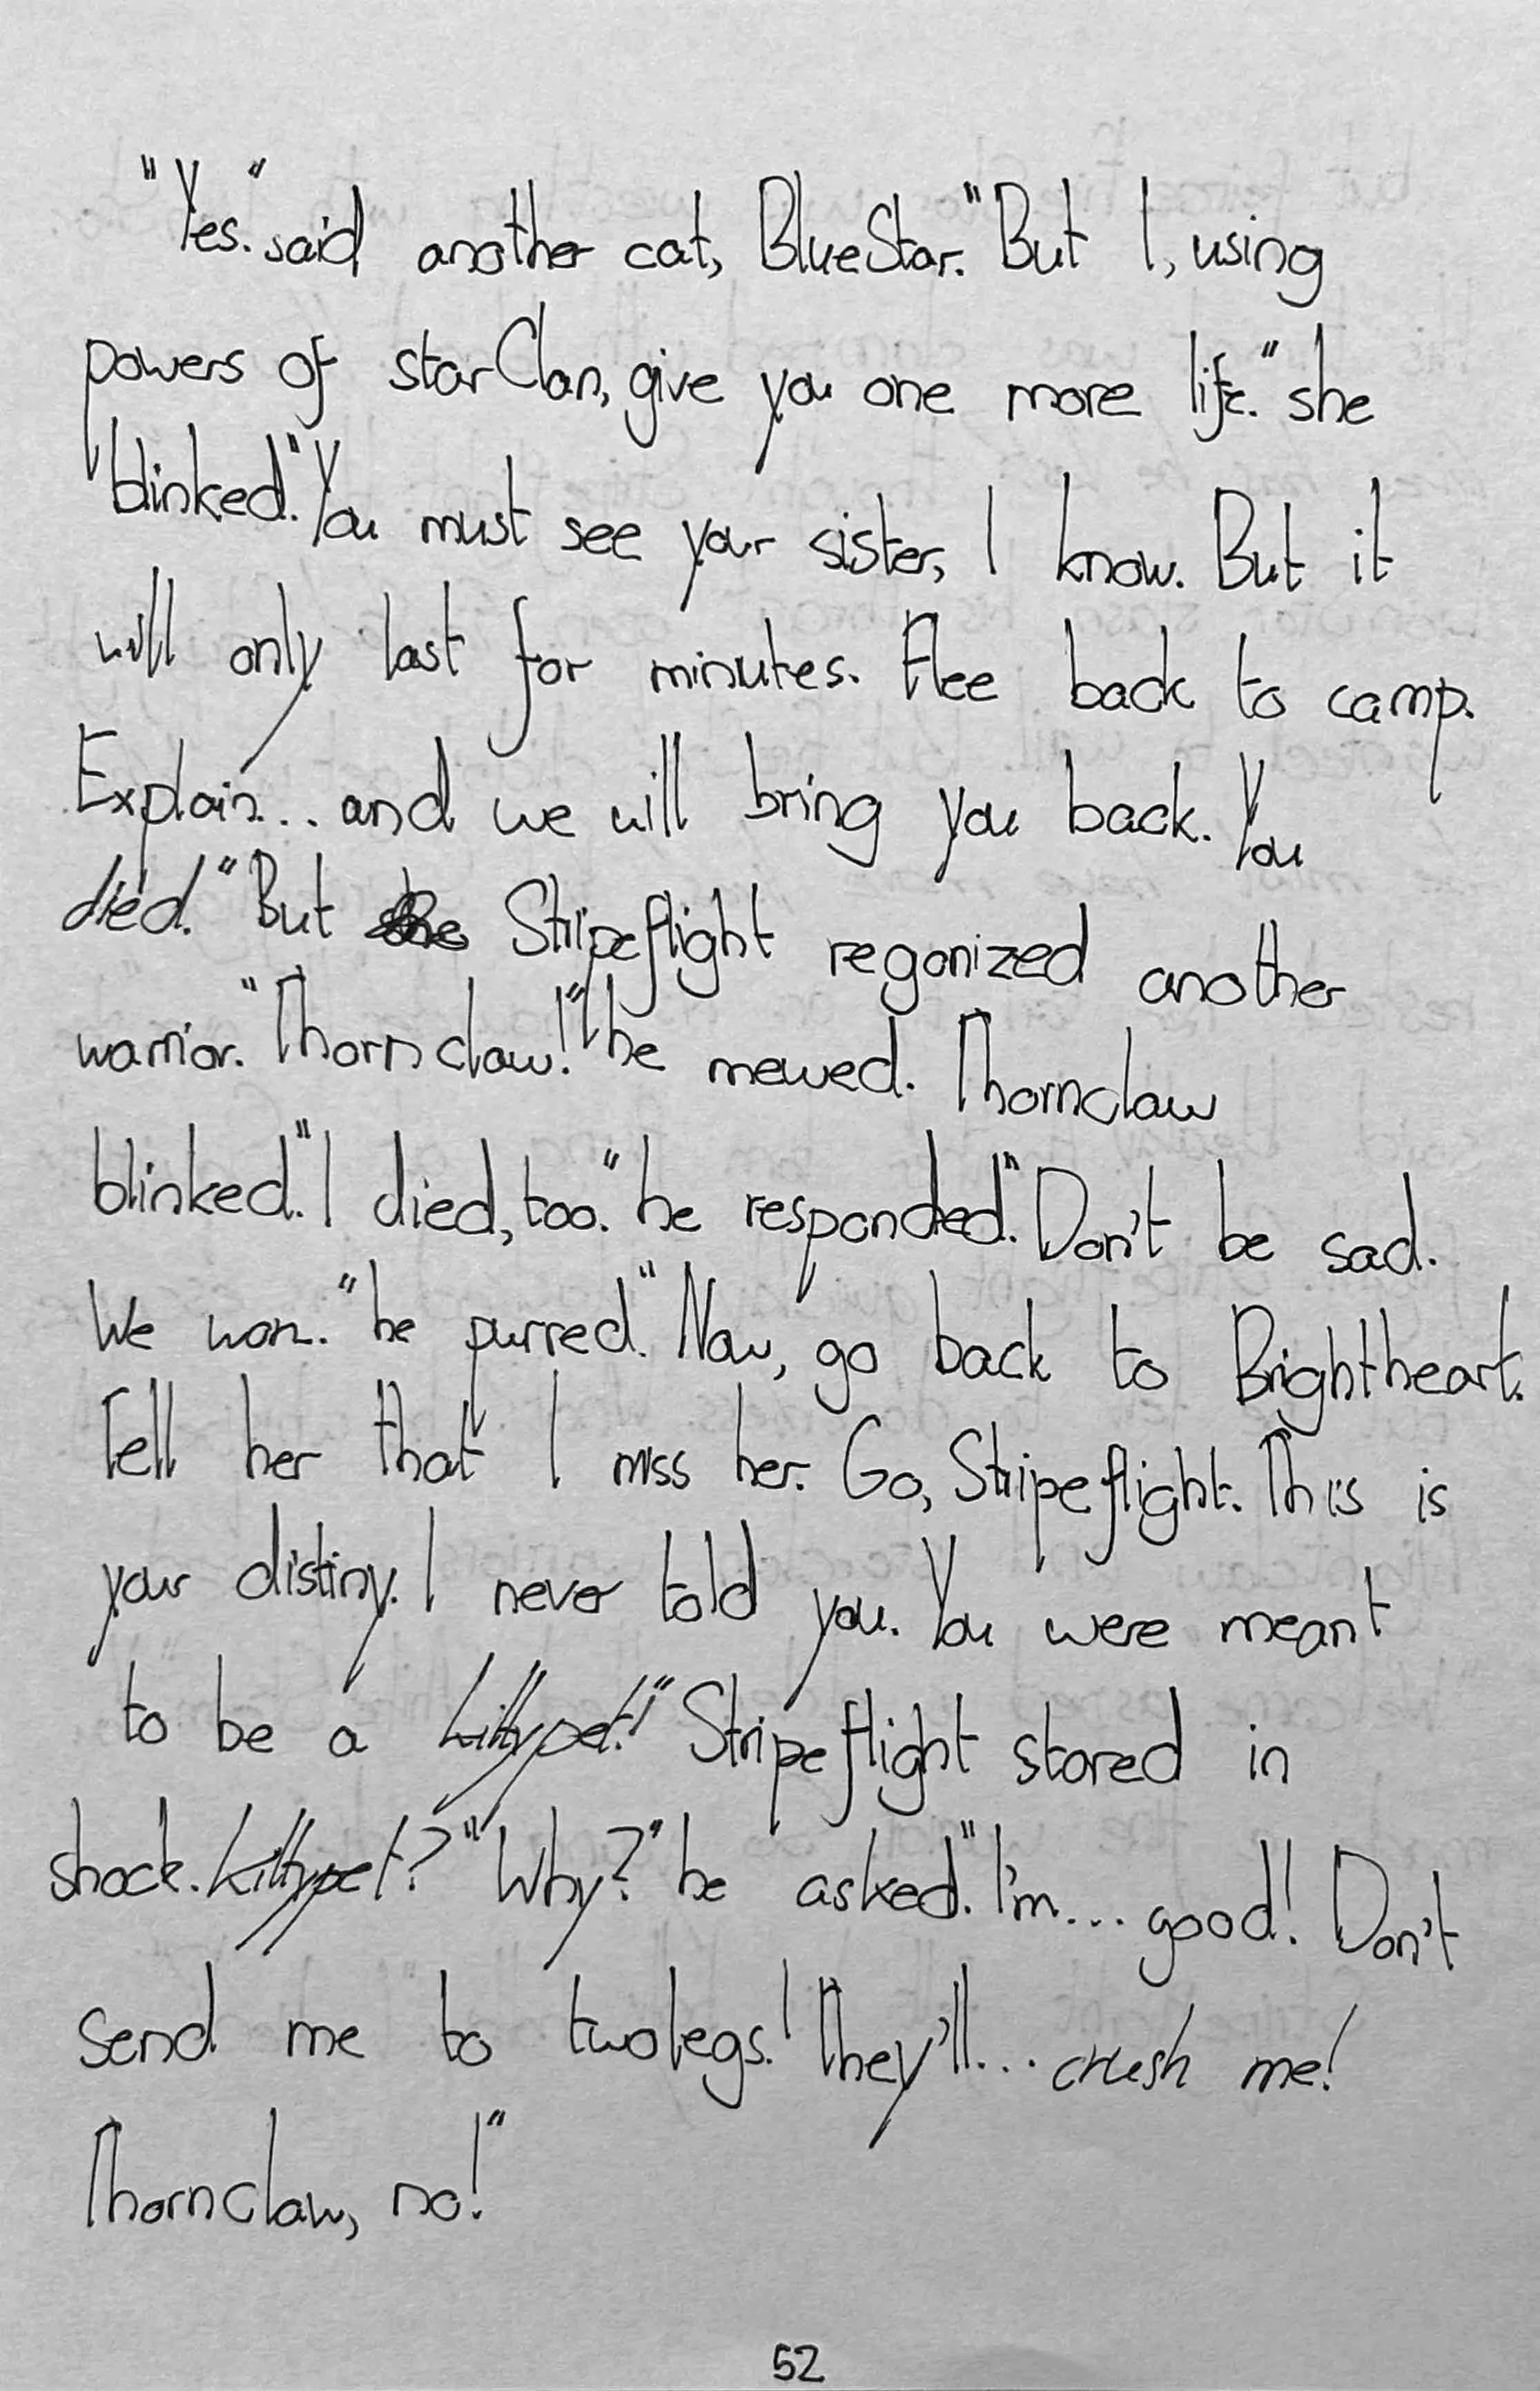 "Yes." said another cat, BlueStar. "But I, using
powers of starClan, give you one more life." she
blinked. "You must see your sister, I know. But it
will only last for minutes. Flee back to camp.
Explain... and we will bring you back. You
died." But Stripeflight regonized another
warrior. "Thornclaw!" he mewed. Thornclaw
blinked. "I died, too." he responded. "Don't be sad.
We won." he purred. "Now, go back to Brightheart.
Tell her that I miss her. Go, Stripeflight. This is
your distiny. I never told you. You were meant
to be a kittypet!" Stripeflight stared in
shock. kittypet? "Why?" he asked. "I'm... good! Don't
send me to twolegs! They'll... crush me!
Thornclaw, no!"
52